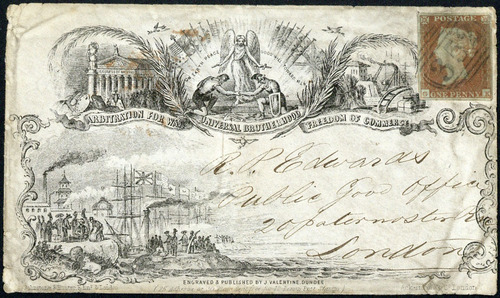 POSTAGE
ONE PENNY
ARBITRATION FOR WAR UNIVERSAL BROTHERHOOD FREEDOM OF COMMERCE
R. P. Edwards
Public Good Office
20 paternoster
London
ENGRAVED & PUBLISHED BY J. VALENTINE, DUNDEE